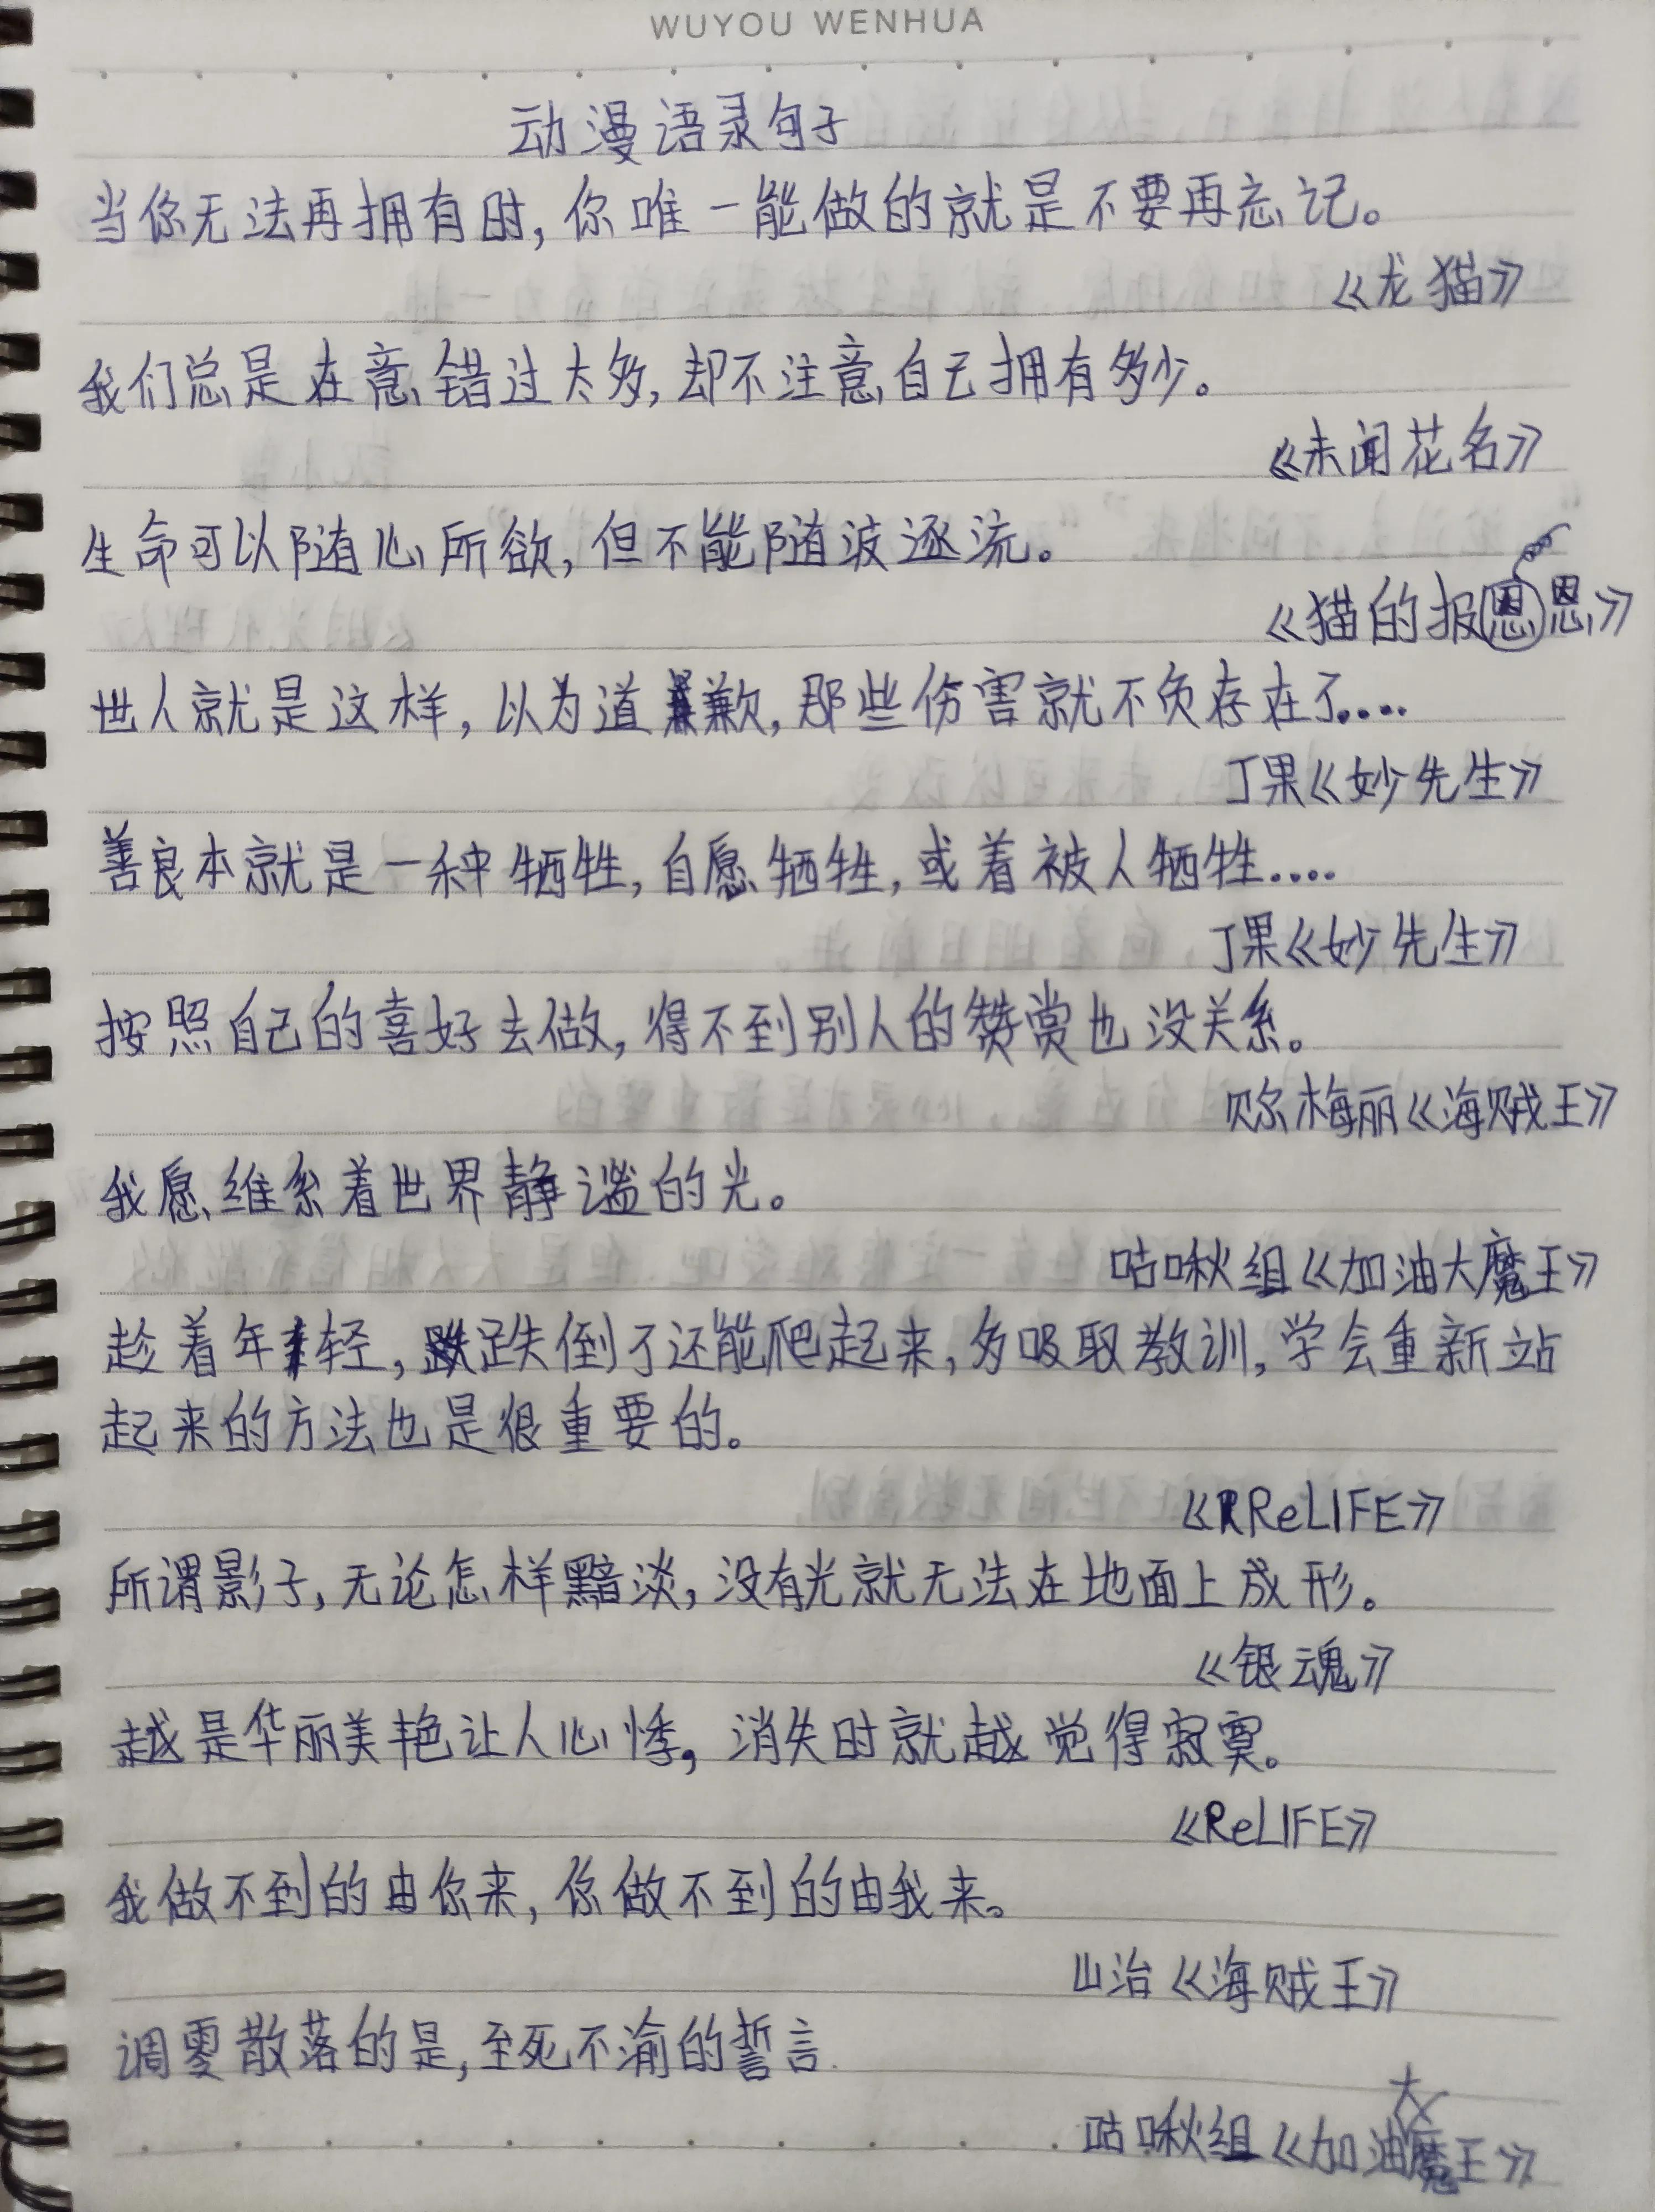 WUYOU WENHUA
动漫语录句子
当你无法再拥有时，你唯一能做的就是不要再忘记。
《龙猫》
我们总是在意错过太多，却不注意自己拥有多少。
《未闻花名》
生命可以随心所欲，但不能随波逐流。
《猫的报恩》
世人就是这样，以为道歉，那些伤害就不负存在了....
丁果《妙先生》
善良本就是一种牺牲，自愿牺牲，或着被人牺牲....
丁果《妙先生》
按照自己的喜好去做，得不到别人的赞赏也没关系。
贝尔梅丽《海贼王》
我愿维系着世界静谧的光。
咕啾组《加油大魔王》
趁着年轻，跌倒了还能爬起来，多吸取教训，学会重新站
起来的方法也是很重要的。
《ReLIFE》
所谓影子，无论怎样黯淡，没有光就无法在地面上成形。
《银魂》
越是华丽美艳让人心悸，消失时就越觉得寂寞。
《ReLIFE》
我做不到的由你来，你做不到的由我来。
山治《海贼王》
调零散落的是，至死不渝的誓言.
咕啾组《加油大魔王》